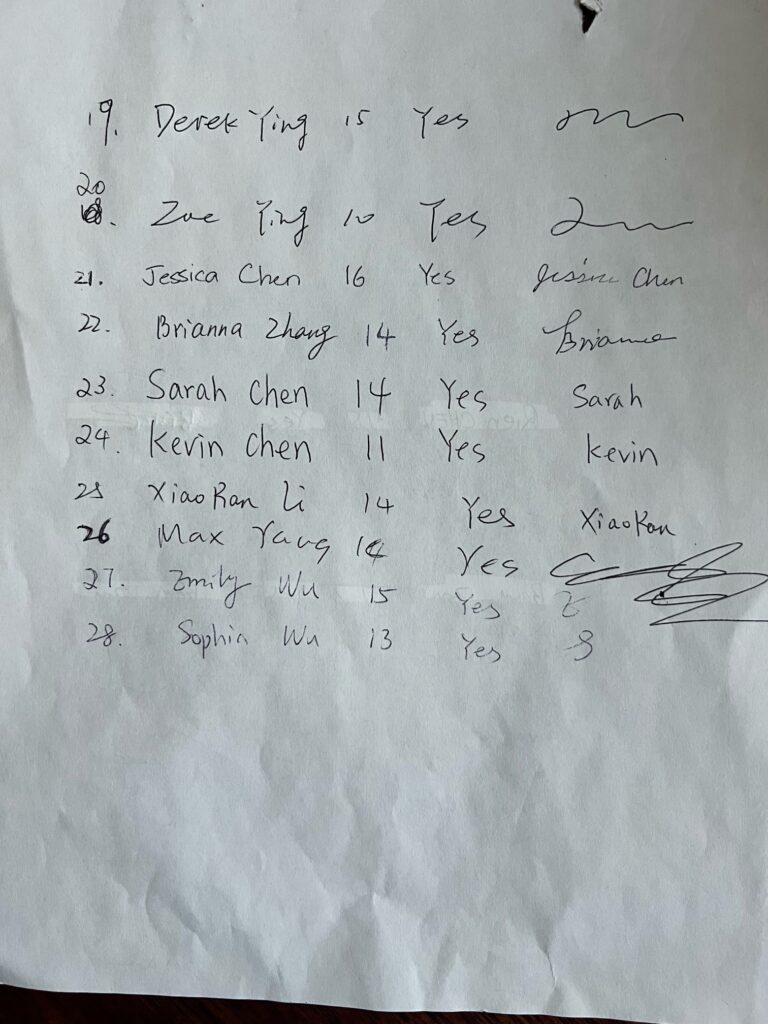 19. Derek Ying 15 Yes
20. Zoe Ying 10 Yes
21. Jessica Chen 16 Yes Jessica Chen
22. Brianna Zhang 14 Yes Brianna
23. Sarah Chen 14 Yes Sarah
24. Kevin Chen 11 Yes Kevin
25 XiaoRan Li 14 Yes XiaoRan
26 Max Yang 14 Yes
27. Emily Wu 15 Yes E
28. Sophia Wu 13 Yes S